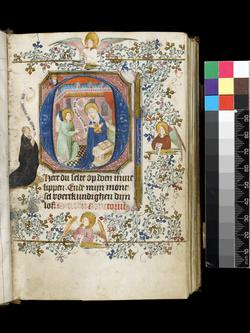 Here du selt op doen mine
lippen. Ende mijn mont
sel voert kundighen dijn
lof.